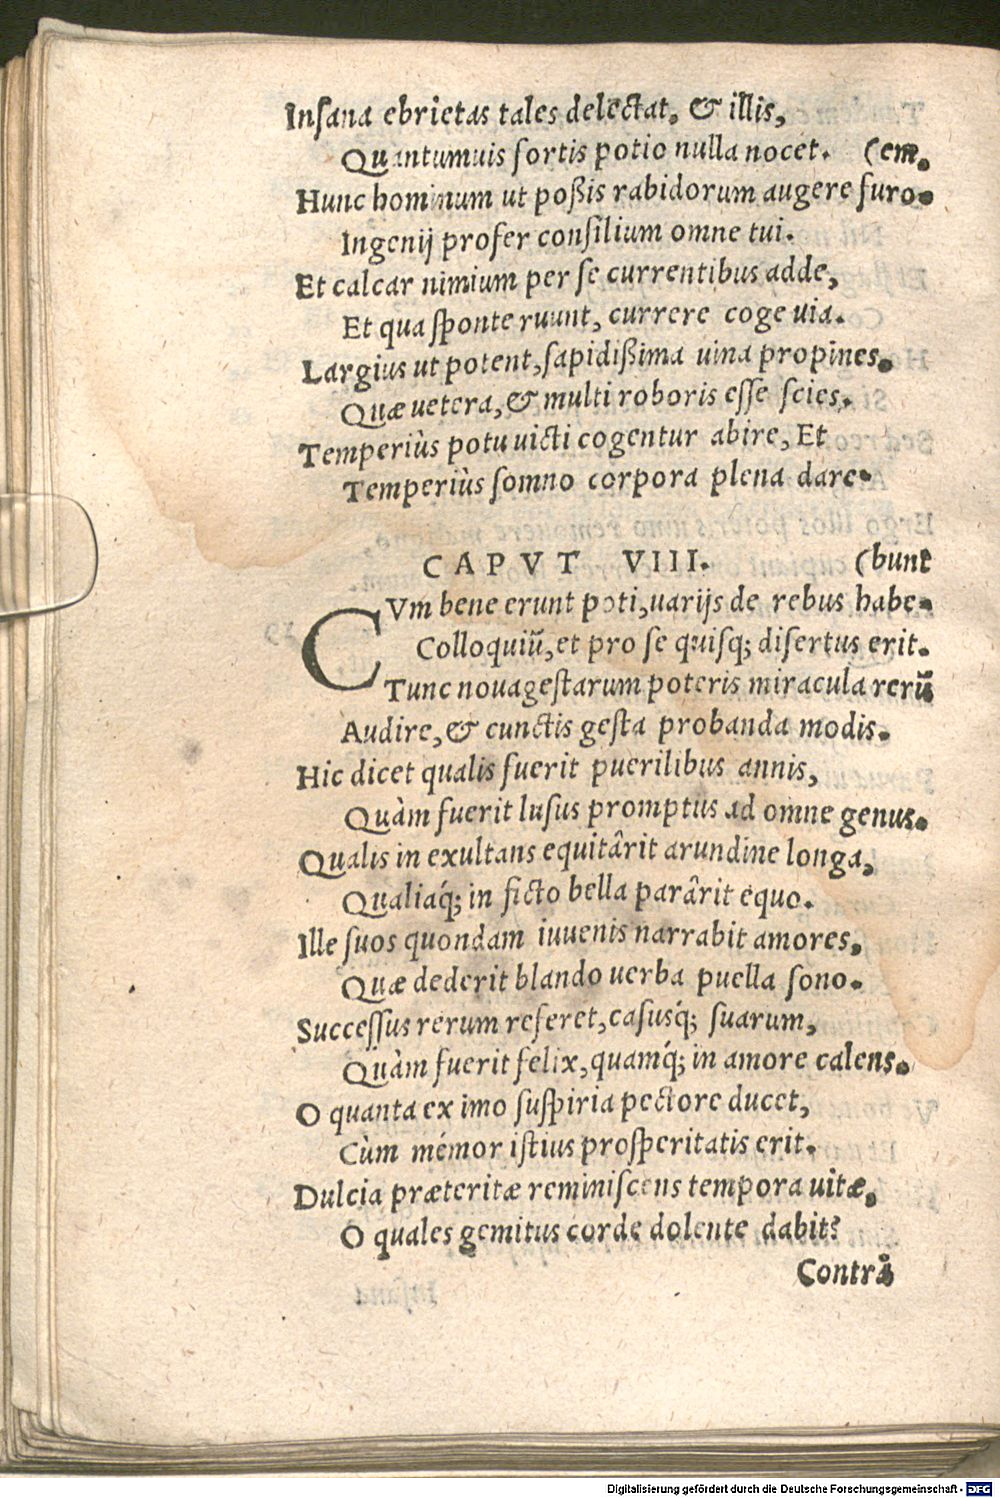 Insana ebrietas tales delectat, & illis,
Quantumuis fortis potio nulla nocet. (em.
Hunc hominum ut poßis rabidorum augere furo-
Ingenij profer consilium omne tui.
Et calcar nimium per se currentibus adde,
Et qua sponte ruunt, currere coge uia.
Largius ut potent, sapidißima uina propines.
Quæ uetera, & multi roboris esse scies.
Temperiùs potu uicti cogentur abire, Et
Temperiùs somno corpora plena dare.
CAPVT VIII. (bunt
CVm bene erunt poti, uarijs de rebus habe-
Colloquiũ, et pro se quisq; disertus erit.
Tunc noua gestarum poteris miracula rerũ
Audire, & cunctis gesta probanda modis.
Hic dicet qualis fuerit puerilibus annis,
Quàm fuerit lusus promptus ad omne genus.
Qualis in exultans equitârit arundine longa,
Qualiaq́; in ficto bella parârit equo.
Ille suos quondam iuuenis narrabit amores,
Quæ dederit blando uerba puella sono.
Successus rerum referet, casusq́; suarum,
Quàm fuerit felix, quamq́; in amore calens.
O quanta ex imo suspiria pectore ducet,
Cùm mémor istius prosperitatis erit.
Dulcia præteritæ reminiscens tempora uitæ,
O quales gemitus corde dolente dabit?
Contrà
Digitalisierung gefördert durch die Deutsche Forschungsgemeinschaft - DFG